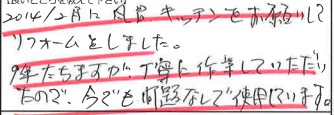 2014/2月に風呂キッチンをお願いして
リフォームをしました。
9年たちますが、丁寧に作業していただい
たので、今でも問題なしで使用しています。